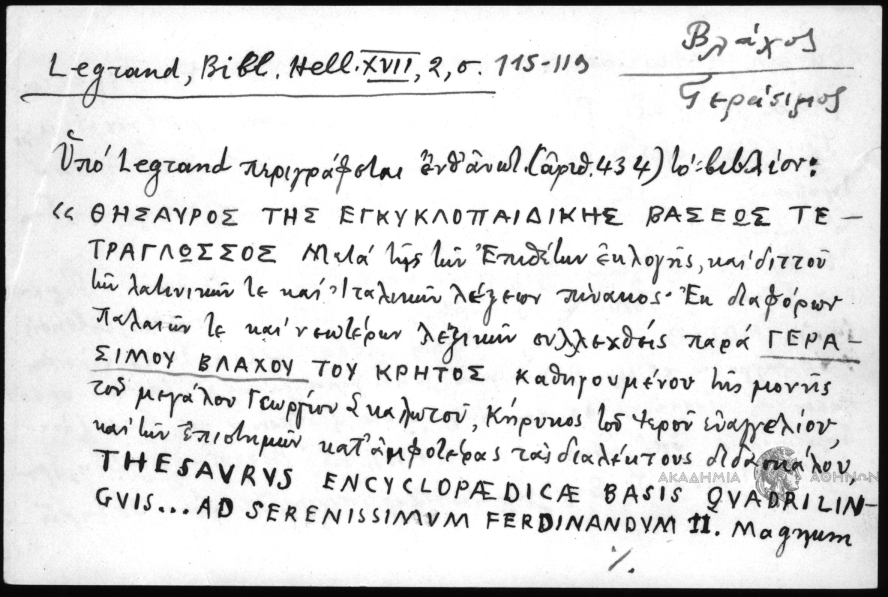 Βλάχος
Γεράσιμος
Legrand, Bibl. Hell. XVII, 2, σ. 115-119
Ὑπό Legrand περιγράφεται ἐνθ' ἀνωτ. (ἀριθ. 434) τό βιβλίον:
« ΘΗΣΑΥΡΟΣ ΤΗΣ ΕΓΚΥΚΛΟΠΑΙΔΙΚΗΣ ΒΑΣΕΩΣ ΤΕ-
ΤΡΑΓΛΩΣΣΟΣ Μετά τῆς τῶν Ἐπιθέτων ἐκλογῆς, καί διττοῦ
τῶν λατινικῶν τε καί Ἰταλικῶν λέξεων πίνακος· Ἐκ διαφόρων
παλαιῶν τε καί νεωτέρων λεξικῶν συλλεχθείς παρά ΓΕΡΑ-
ΣΙΜΟΥ ΒΛΑΧΟΥ ΤΟΥ ΚΡΗΤΟΣ καθηγουμένου τῆς μονῆς
τοῦ μεγάλου Γεωργίου Σκαλωτοῦ, Κήρυκος τοῦ Ἱεροῦ εὐαγγελίου,
καί τῶν ἐπιστημῶν κατ' ἀμφοτέρας τάς διαλέκτους διδασκάλου,
THESAVRVS ENCYCLOPÆDICÆ BASIS QVADRILIN-
GVIS... AD SERENISSIMVM FERDINANDVM II. Magnum
ΑΚΑΔΗΜΙΑ ΑΘΗΝΩΝ
·/.